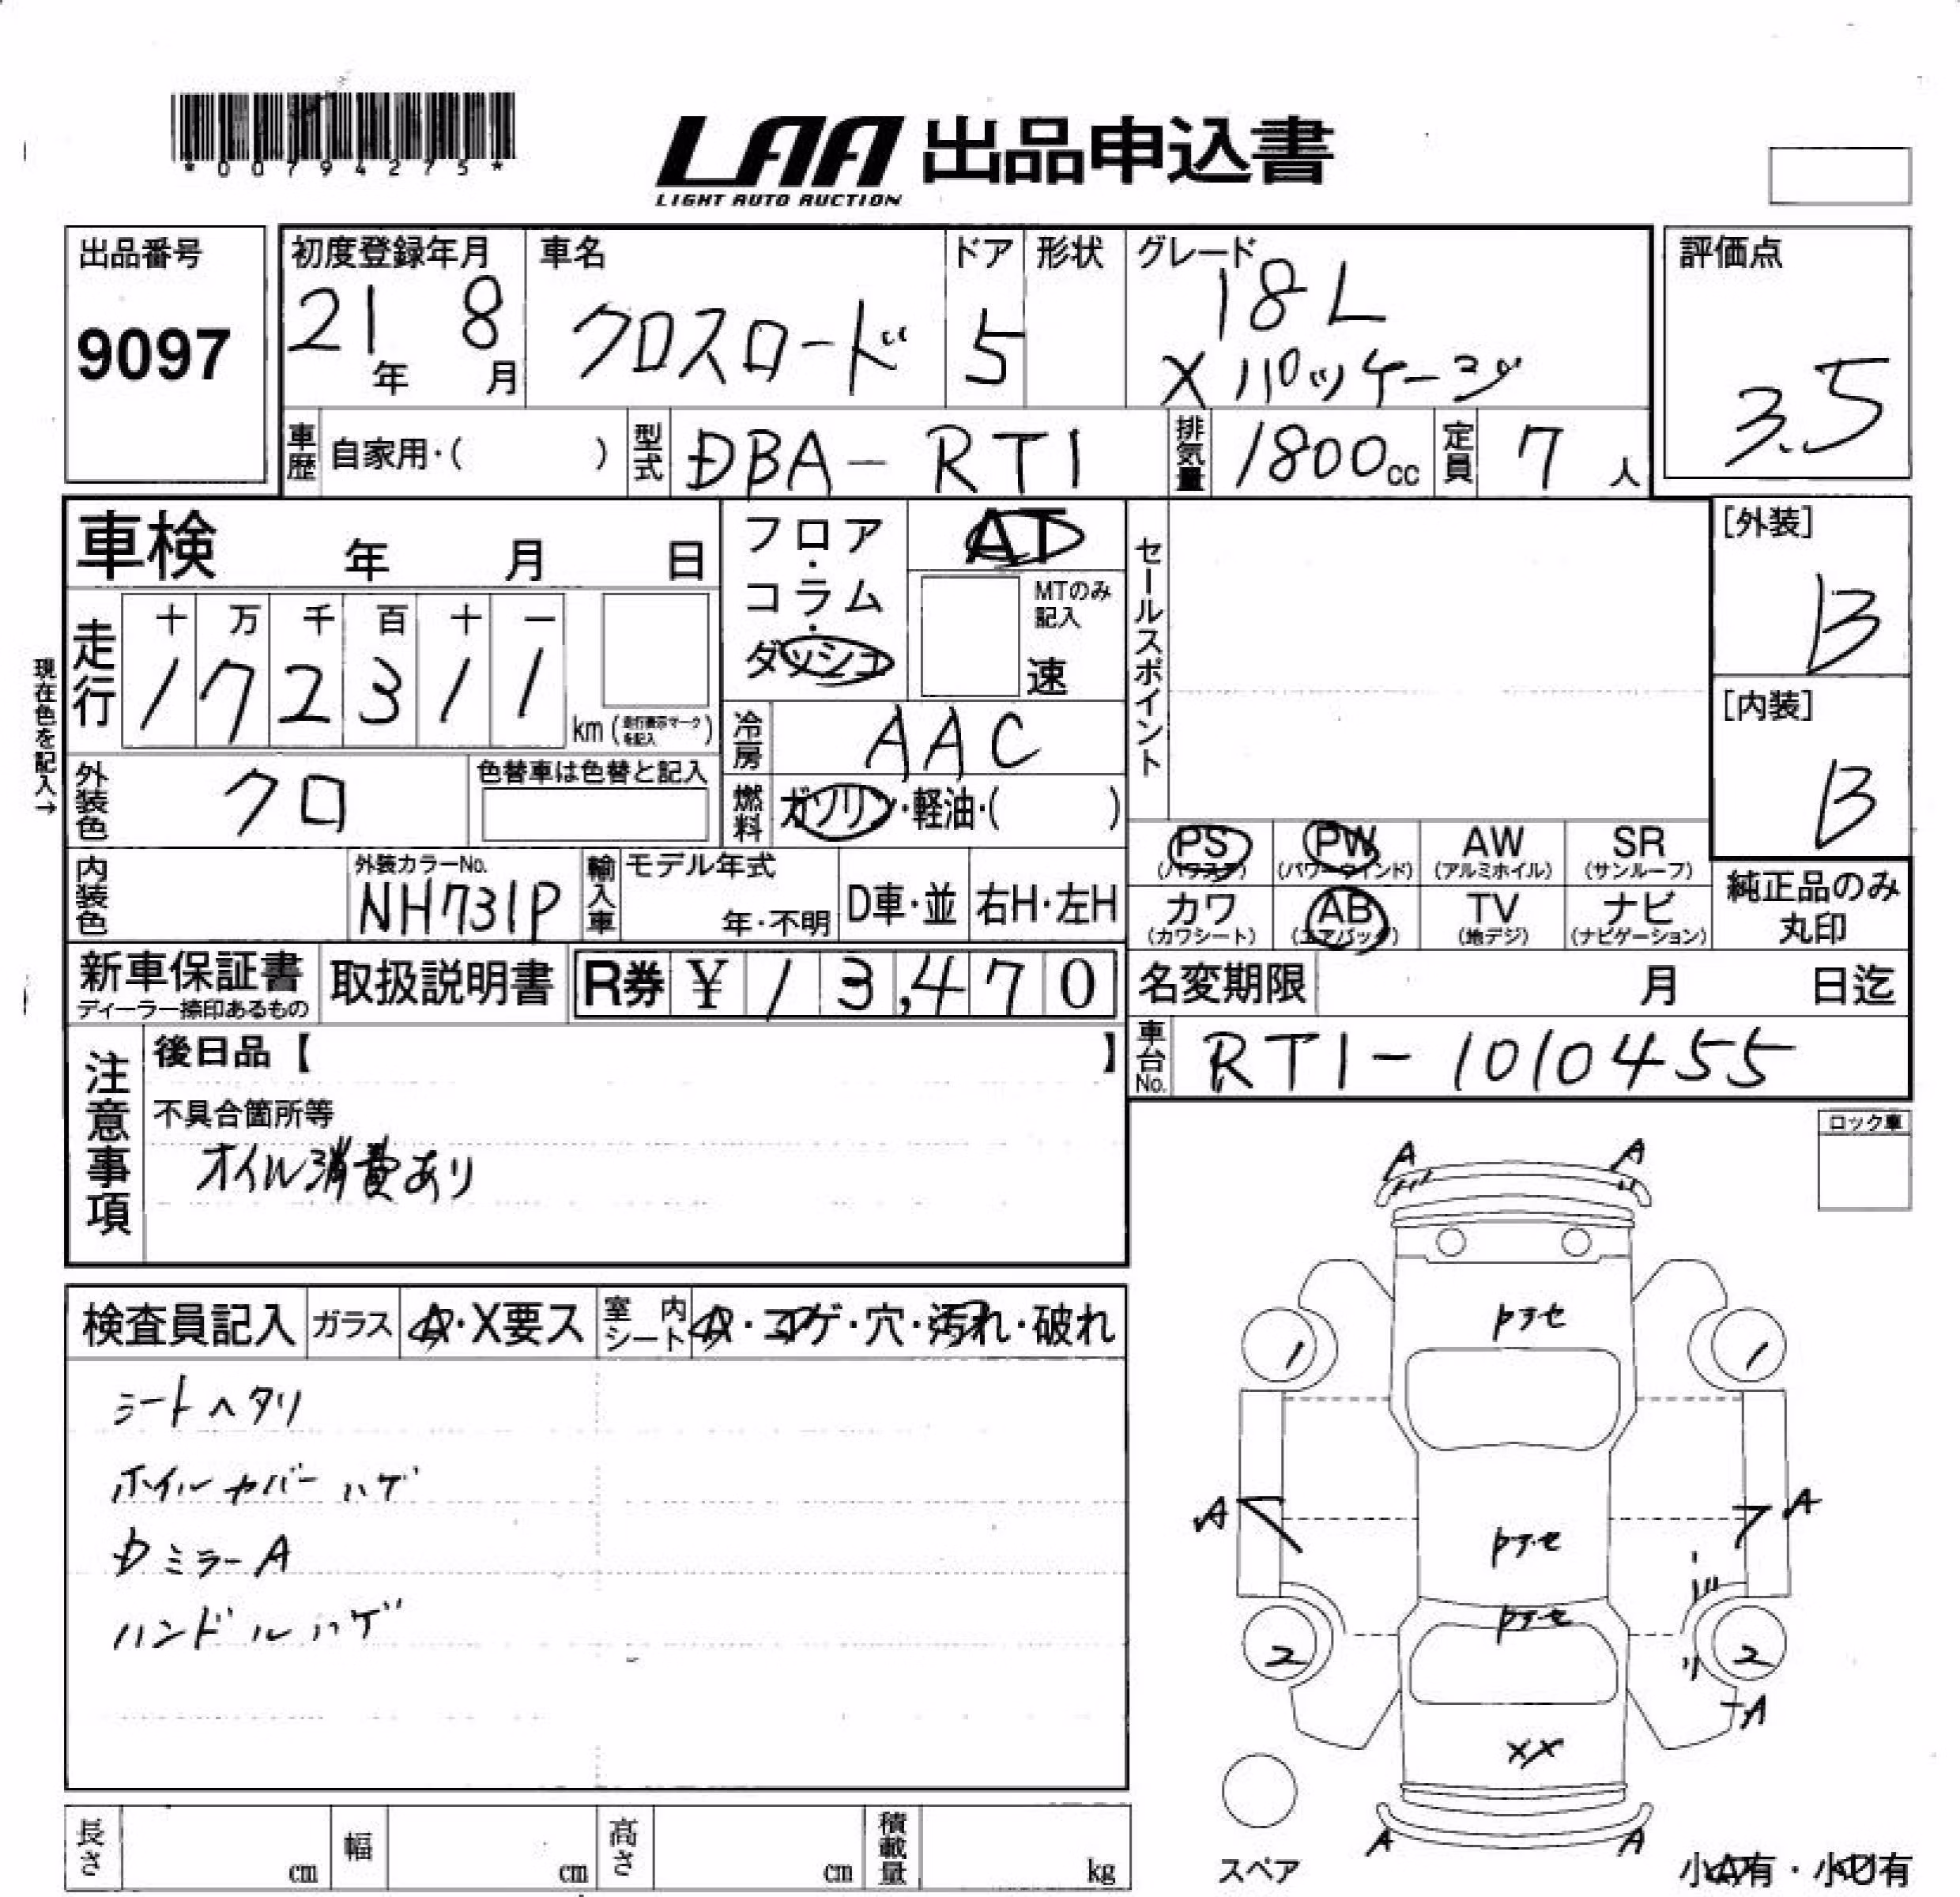 *00794275*
LAA 出品申込書
LIGHT AUTO AUCTION
出品番号
9097
初度登録年月
21年 8月
車名
クロスロード
ドア
5
形状
グレード
18L
Xパッケージ
評価点
3.5
車歴 自家用・( )
型式 DBA-RT1
排気量 1800cc
定員 7人
車検 年 月 日
フロア・コラム・ダッシュ
AT
MTのみ記入
速
セールスポイント
[外装]
B
[内装]
B
現在色を記入→
走行
十 万 千 百 十 一
1 7 2 3 1 1
km (走行表示マークを記入)
冷房 AAC
外装色 クロ
色替車は色替と記入
燃料 ガソリン・軽油・( )
PS (パワステ)
PW (パワーウィンド)
AW (アルミホイル)
SR (サンルーフ)
カワ (カワシート)
AB (エアバッグ)
TV (地デジ)
ナビ (ナビゲーション)
純正品のみ丸印
内装色
外装カラーNo.
NH731P
輸入車
モデル年式
年・不明
D車・並
右H・左H
新車保証書
ディーラー捺印あるもの
取扱説明書
R券 ¥ 13,470
名変期限 月 日迄
車台No. RT1-1010455
注意事項
後日品【 】
不具合箇所等
オイル消費あり
ロック車
検査員記入
ガラス A・X要ス
室内シート A・コゲ・穴・汚れ・破れ
シートヘタリ
ホイルカバーハゲ
Dミラー A
ハンドルハゲ
A A
トアセ
1 1
A A
トアセ
トアセ
2 2
A
XX
A A
スペア
小A有・小U有
長さ cm
幅 cm
高さ cm
積載量 kg